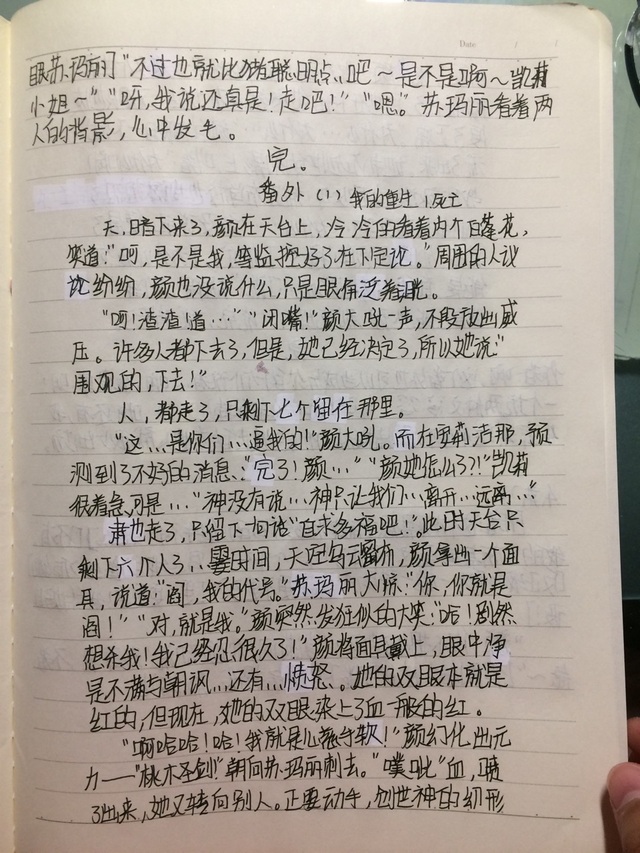 Date
眼苏玛丽“不过也就比猪聪明点、吧～是不是啊～凯莉
小姐～”“呀,我说还真是!走吧!”“嗯。”苏玛丽看着两
人的背影,心中发毛。
完。
番外(1)我的重生,死亡
天,暗下来了,颜在天台上,冷冷的看着内个白莲花,
笑道:“呵,是不是我,等监控好了在下定论。”周围的人议
论纷纷,颜也没说什么,只是眼角泛着
“呵!渣渣!道…”“闭嘴!”颜大吼一声,不段放出威
压。许多人都下去了,但是,她已经决定了,所以她说:“
围观的,下去!”
人,都走了,只剩下七个留在那里。
“这…是你们…逼我的!”颜大吼。而在安莉洁那,预
测到了不好的消息、“完了!颜…”“颜她怎么了?!”凯莉
很着急,可是…“神没有说…神只让我们…离开…远离…”
肃也走了,只留下一句话“自求多福吧!”。此时天台只
剩下六个人了…霎时间,天空乌云密布,颜拿出一个面
具,说道:“阎,我的代号。”苏玛丽大惊:“你,你就是
阎!”“对,就是我。”颜突然发狂似的大笑:“哈!居然
想杀我!我已经忍很久了!”颜将面具戴上,眼中净
是不满与朝讽…还有…愤怒、。她的双眼本就是
红的,但现在,她的双眼染上了血一般的红。
“啊哈哈!哈!我就是心慈手软!”颜幻化出元
力——“桃木圣剑”朝向苏玛丽刺去。“噗呲”血,喷
了出来,她又转向别人。正要动手,创世神的幻形